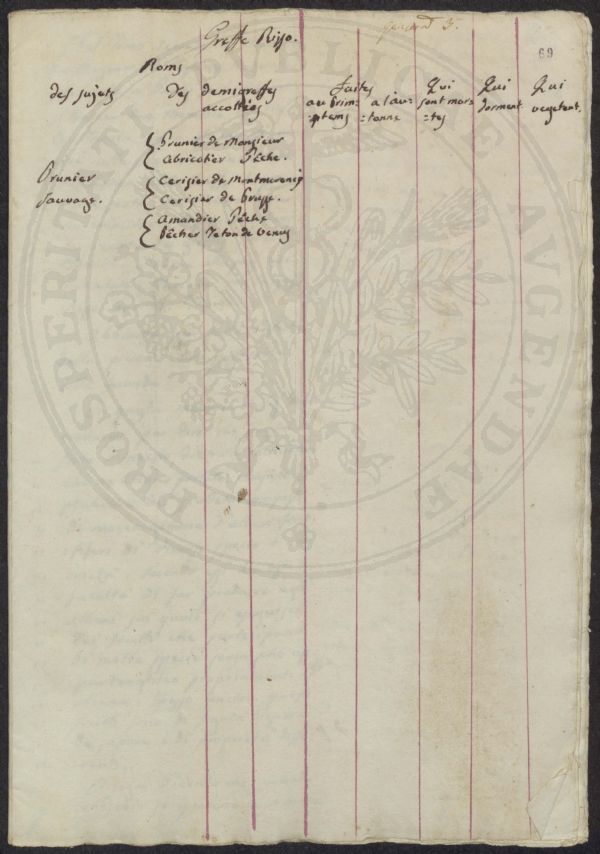 Greffe Risso.
69
Noms
des sujets des demigreffes accollées faites au prim=ptems a l'au=tonne Qui sont mor=tes Qui dorment Qui vegetent.
Prunier de Monsieur
abricotier Pêche.
Prunier
Cerisier de Montmorency
Sauvage.
Cerisier de Prusse.
Amandier Pêche
Pêcher Teton de Venus
PROSPERITATI PUBLICAE AVGENDAE